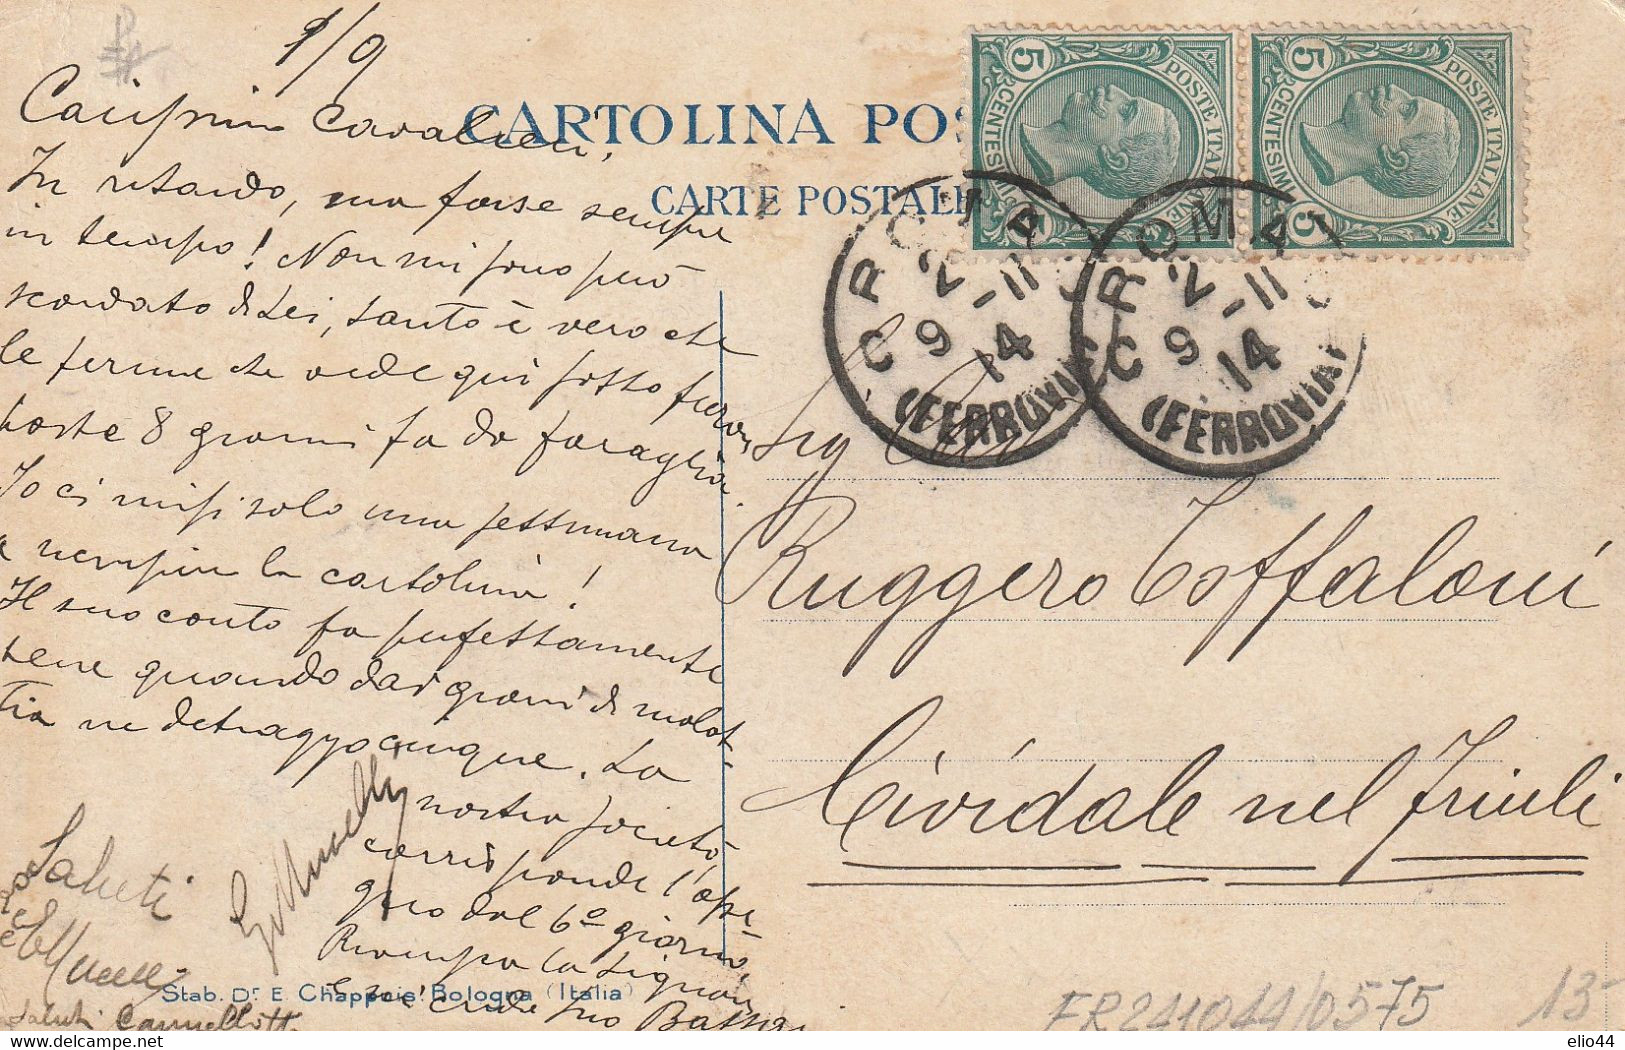 1/9
CARTOLINA POS
CARTE POSTALE
Carissimo Cavalieri,
In ritardo, ma forse sempre
in tempo! Non mi sono però
scordato di Lei, tanto è vero che
le ferme che vede qui sotto furon
poste 8 giorni fa da Faraglia.
Io ci misi solo una settimana
a riempire la cartolina!
Il suo conto fa perfettamente
bene quando dai giorni di malat-
tia ne detraggo cinque. La
nostra società,
corrisponde l'asse
gno dal 6º giorno.
Riempa la
e Suo
Saluti
Saluti
Stab. Dr E. Chappuis Bologna (Italia)
POSTE ITALIANE
CENTESIMI
5
5
POSTE ITALIANE
CENTESIMI
5
5
ROMA
9-11
14
(FERROVIA)
ROMA
9-11
14
(FERROVIA)
Sig Cav
Ruggero Toffaloni
Cividale nel Friuli
FR241044/0575
13-
elio44